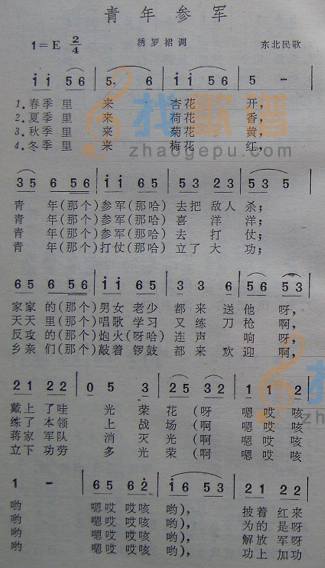 青年参军
1=E 2/4 绣罗裙调 东北民歌
i i 5 6 | 5. 6 | i i 5 6 | 5 - |
1.春季里来杏花开,
2.夏季里来荷花香,
3.秋季里来菊花黄,
4.冬季里来梅花红,
找歌谱
zhaogepu.com
3 5 6 56 | i i 6 5 | 5 3 5 6 53 | 5 3 5 |
青年(那个)参军(那哈)去把敌人杀;
青年(那个)参军(那哈)喜洋洋;
青年(那个)参军(那哈)去打仗;
青年(那个)打仗(那哈)立了大功;
家家的(那个)男女老少都来送他呀,
天天里(那个)唱歌学习又练刀枪啊,
反攻的(那个)炮火(呀哈)连声响呀,
乡亲们(那个)敲着锣鼓都来欢迎啊,
21 22 | 05 3 | 25 32 | 11 2 |
戴上了哇光荣花(呀嗯哎咳
练了本领上战场(啊嗯哎咳
蒋家军队消灭光(啊嗯哎咳
立下功劳多光荣(啊嗯哎咳
哟嗯哎哎咳哟),披着红来
哟嗯哎哎咳哟),为的是呀
哟嗯哎哎咳哟),解放军呀
哟嗯哎哎咳哟),功上加功